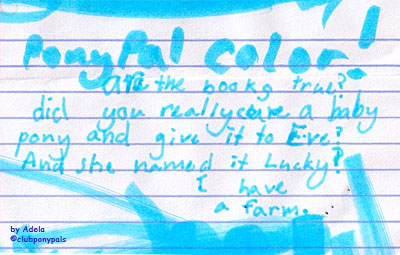 PonyPal color!
are the books true?
did you really care a baby
pony and give it to Eve?
And she named it Lucky?
I have
a farm.
by Adela
©clubponypals